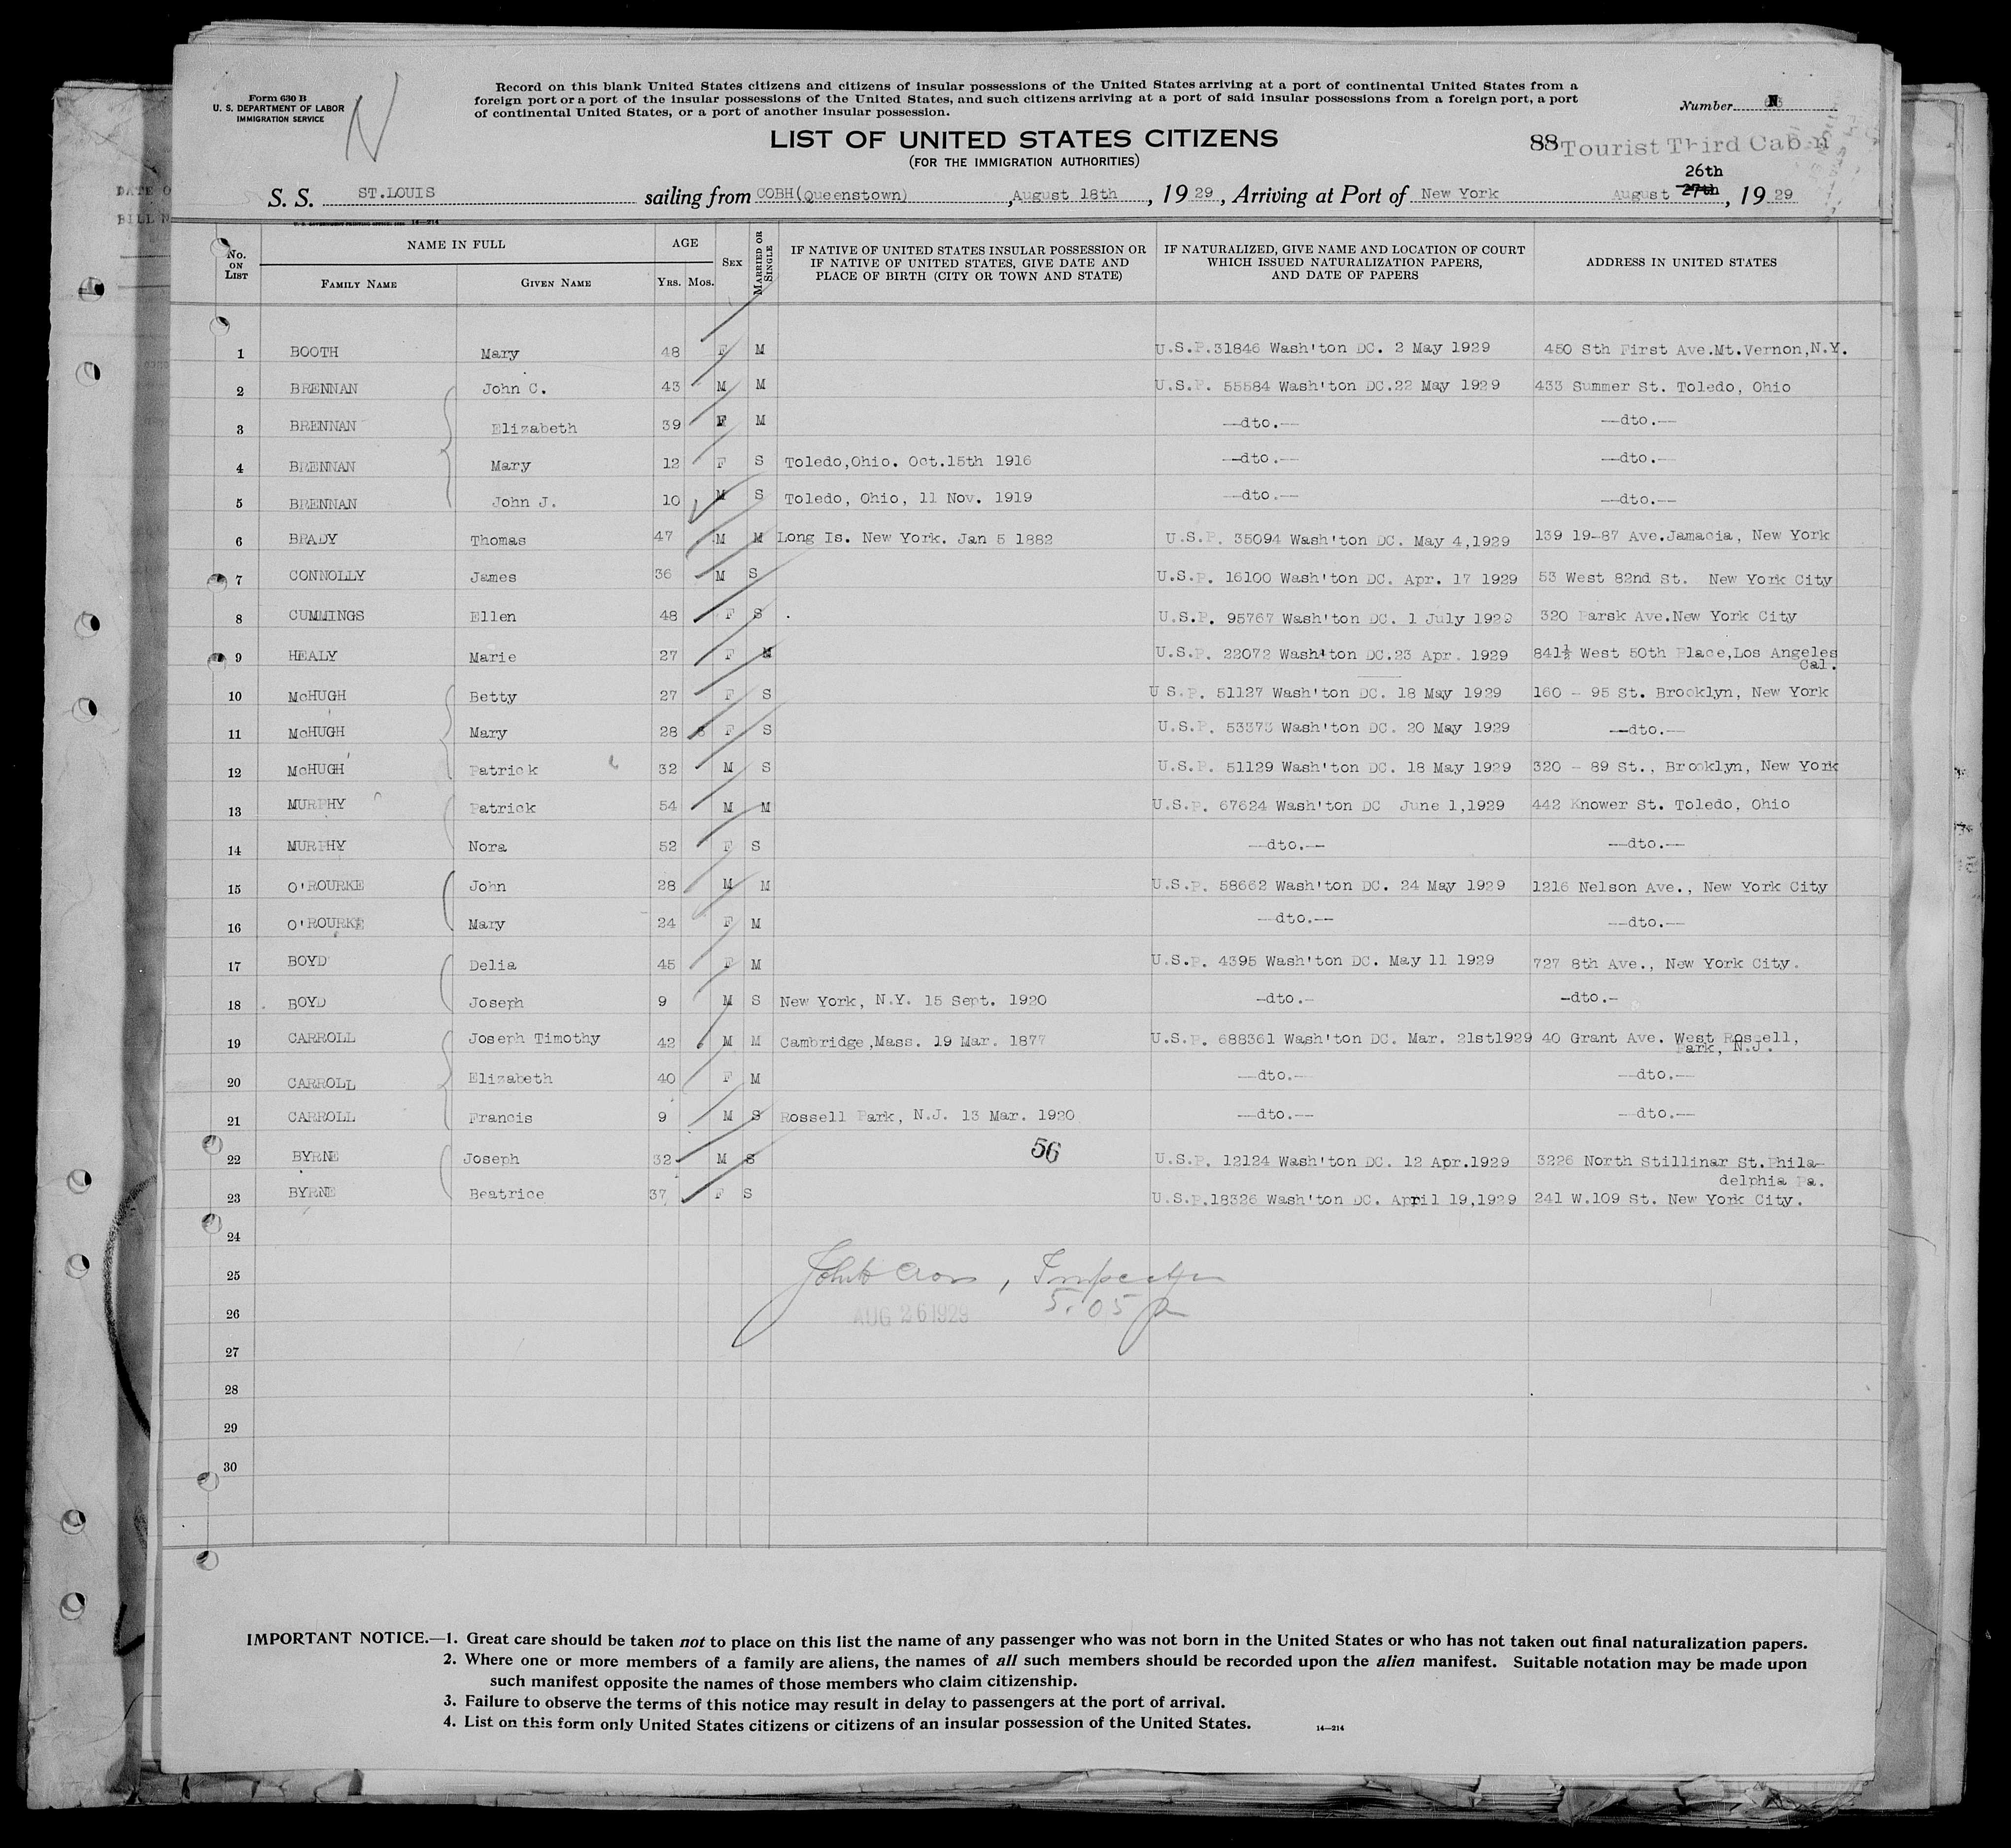 Form 630 B
U. S. DEPARTMENT OF LABOR
IMMIGRATION SERVICE
N
Record on this blank United States citizens and citizens of insular possessions of the United States arriving at a port of continental United States from a
foreign port or a port of the insular possessions of the United States, and such citizens arriving at a port of said insular possessions from a foreign port, a port
of continental United States, or a port of another insular possession.
Number N
LIST OF UNITED STATES CITIZENS
(FOR THE IMMIGRATION AUTHORITIES)
88 Tourist Third Cabin
26th
S. S. ST.LOUIS sailing from COBH(Queenstown), August 18th, 1929, Arriving at Port of New York August 27th, 1929
No. ON LIST NAME IN FULL AGE SEX MARRIED OR SINGLE IF NATIVE OF UNITED STATES INSULAR POSSESSION OR IF NATIVE OF UNITED STATES, GIVE DATE AND PLACE OF BIRTH (CITY OR TOWN AND STATE) IF NATURALIZED, GIVE NAME AND LOCATION OF COURT WHICH ISSUED NATURALIZATION PAPERS, AND DATE OF PAPERS ADDRESS IN UNITED STATES
FAMILY NAME GIVEN NAME YRS. MOS.
1 BOOTH Mary 48 F M U.S.P.31846 Wash'ton DC. 2 May 1929 450 Sth First Ave.Mt.Vernon,N.Y.
2 BRENNAN John C. 43 M M U.S.P. 55584 Wash'ton DC.22 May 1929 433 Summer St. Toledo, Ohio
3 BRENNAN Elizabeth 39 F M —dto.— —dto.—
4 BRENNAN Mary 12 F S Toledo,Ohio. Oct.15th 1916 —dto.— —dto.—
5 BRENNAN John J. 10 M S Toledo, Ohio, 11 Nov. 1919 —dto.— —dto.—
6 BRADY Thomas 47 M M Long Is. New York. Jan 5 1882 U.S.P. 35094 Wash'ton DC. May 4,1929 139 19-87 Ave.Jamacia, New York
7 CONNOLLY James 36 M S U.S.P. 16100 Wash'ton DC. Apr. 17 1929 53 West 82nd St. New York City
8 CUMMINGS Ellen 48 F S . U.S.P. 95767 Wash'ton DC. 1 July 1929 320 Parsk Ave.New York City
9 HEALY Marie 27 F M U.S.P. 22072 Wash'ton DC.23 Apr. 1929 841½ West 50th Place,Los Angeles
Cal.
10 McHUGH Betty 27 F S U S.P. 51127 Wash'ton DC. 18 May 1929 160 - 95 St. Brooklyn, New York
11 McHUGH Mary 28 F S U.S.P. 53373 Wash'ton DC. 20 May 1929 —dto.—
12 McHUGH Patrick 32 M S U.S.P. 51129 Wash'ton DC. 18 May 1929 320 - 89 St., Brooklyn, New York
13 MURPHY Patrick 54 M M U.S.P. 67624 Wash'ton DC June 1,1929 442 Knower St. Toledo, Ohio
14 MURPHY Nora 52 F S —dto.— —dto.—
15 O'ROURKE John 28 M M U.S.P. 58662 Wash'ton DC. 24 May 1929 1216 Nelson Ave., New York City
16 O'ROURKE Mary 24 F M —dto.— —dto.—
17 BOYD Delia 45 F M U.S.P. 4395 Wash'ton DC. May 11 1929 727 8th Ave., New York City.
18 BOYD Joseph 9 M S New York, N.Y. 15 Sept. 1920 —dto.- -dto.-
19 CARROLL Joseph Timothy 42 M M Cambridge,Mass. 19 Mar. 1877 U.S.P. 688361 Wash'ton DC. Mar. 21st1929 40 Grant Ave. West Rossell,
Park, N.J.
20 CARROLL Elizabeth 40 F M —dto.— —dto.—
21 CARROLL Francis 9 M S Rossell Park, N.J. 13 Mar. 1920 —dto.— —dto.—
56
22 BYRNE Joseph 32 M S U.S.P. 12124 Wash'ton DC. 12 Apr.1929 3226 North Stillinar St.Phila-
delphia Pa.
23 BYRNE Beatrice 37 F S U.S.P.18326 Wash'ton DC. April 19,1929 241 W.109 St. New York City.
24
25 Inspector
26 AUG 26 1929 5.05 p
27
28
29
30
IMPORTANT NOTICE.—1. Great care should be taken not to place on this list the name of any passenger who was not born in the United States or who has not taken out final naturalization papers.
2. Where one or more members of a family are aliens, the names of all such members should be recorded upon the alien manifest. Suitable notation may be made upon
such manifest opposite the names of those members who claim citizenship.
3. Failure to observe the terms of this notice may result in delay to passengers at the port of arrival.
4. List on this form only United States citizens or citizens of an insular possession of the United States.
14—214